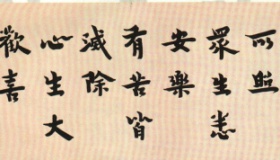 所照
眾生悉
安樂
有苦皆
滅除
心生大
歡喜